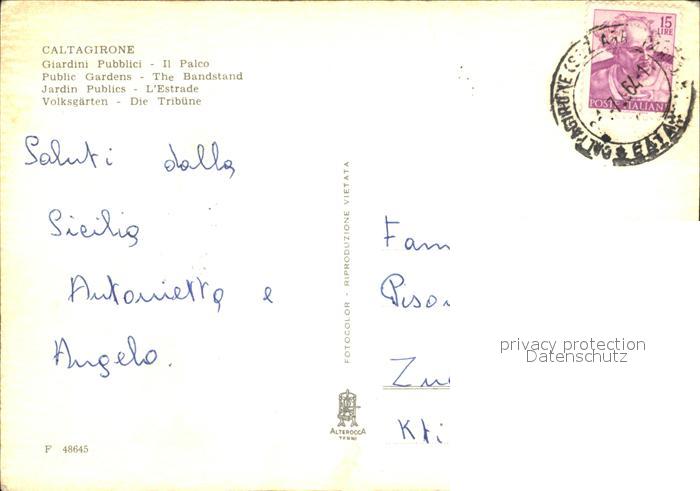 CALTAGIRONE
Giardini Pubblici - Il Palco
Public Gardens - The Bandstand
Jardin Publics - L'Estrade
Volksgärten - Die Tribüne
15
LIRE
POSTE ITALIANE
Saluti dalla
Sicilia
Antonietta e
Angelo.
FOTOCOLOR - RIPRODUZIONE VIETATA
Fam
privacy protection
Datenschutz
ALTEROCCA
TERNI
F 48645